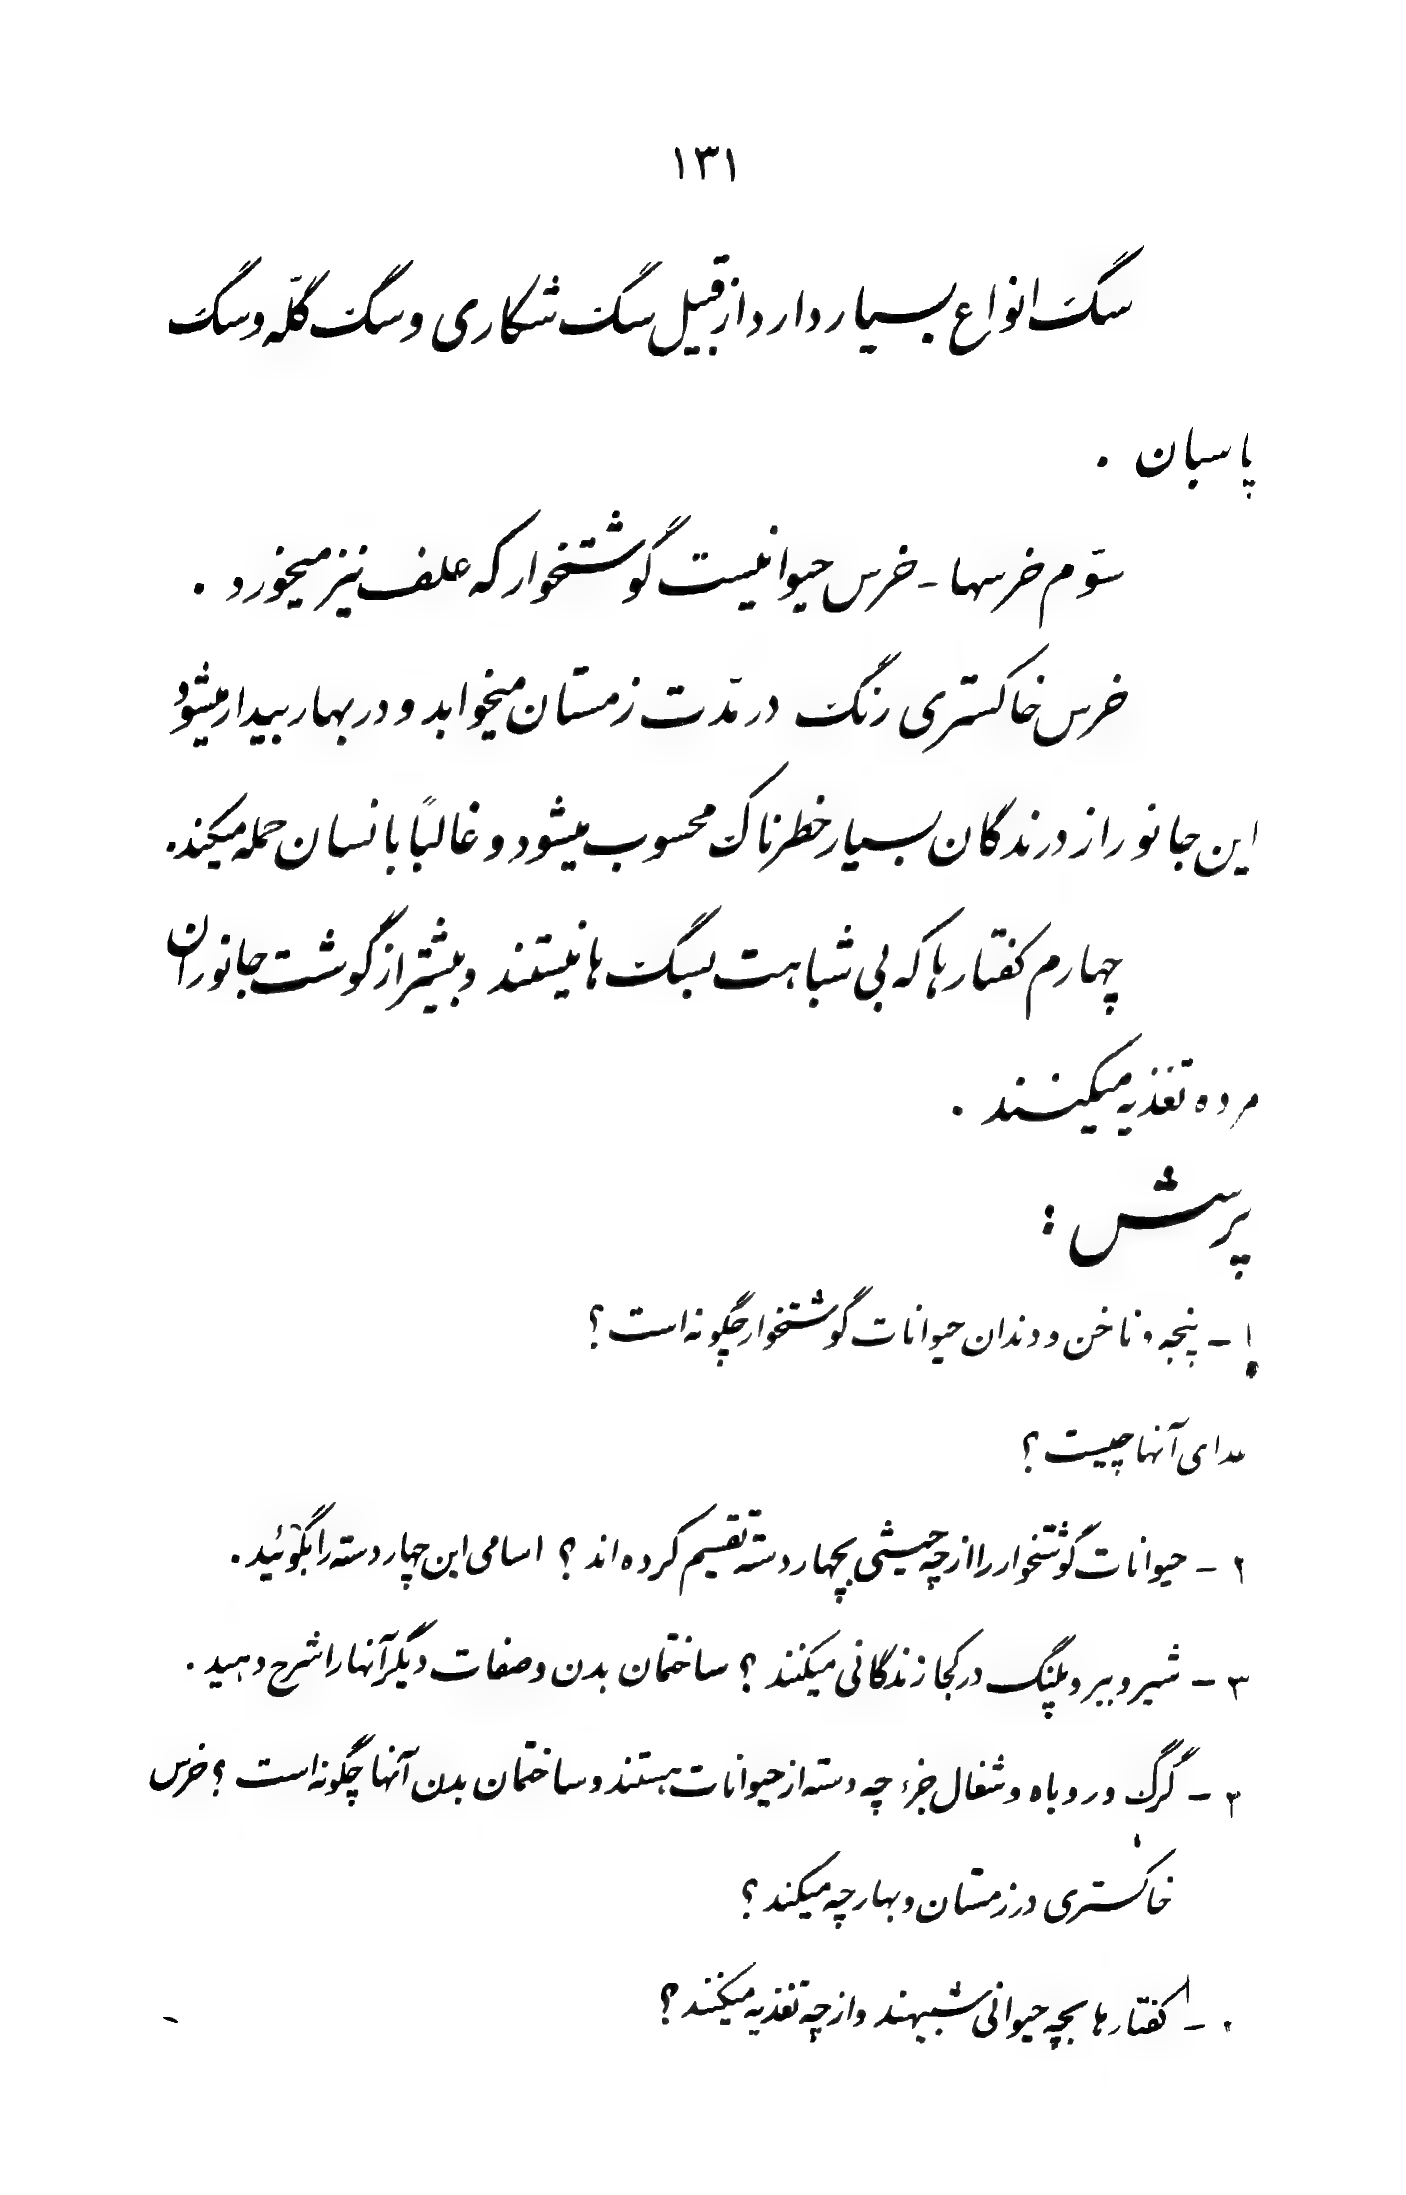 ۱۳۱
سگ انواع بسیار دارد از قبیل سگ شکاری و سگ گلّه و سگ
پاسبان .
سوّم خرسها - خرس حیوانیست گوشتخوار که علف نیز میخورد .
خرس خاکستری رنگ در مدّت زمستان میخوابد و در بهار بیدار میشود
این جانور از درندگان بسیار خطرناک محسوب میشود و غالباً بانسان حمله میکند.
چهارم کفتارها که بی شباهت بسگ ها نیستند و بیشتر از گوشت جانوران
مرده تغذیه میکنند .
پرسش :
۱ - پنجه و ناخن و دندان حیوانات گوشتخوار چگونه است ؟
آنها چیست ؟
۲ - حیوانات گوشتخوار را از چه حیثی بچهار دسته تقسیم کرده اند ؟ اسامی این چهار دسته را بگوئید .
۳ - شیر و ببر و پلنگ در کجا زندگانی میکنند ؟ ساختمان بدن و صفات دیگر آنها را شرح دهید .
۴ - گرگ و روباه و شغال جزء چه دسته از حیوانات هستند و ساختمان بدن آنها چگونه است ؟ خرس
خاکستری در زمستان و بهار چه میکند ؟
- کفتارها بچه حیوانی شبیهند و از چه تغذیه میکنند ؟